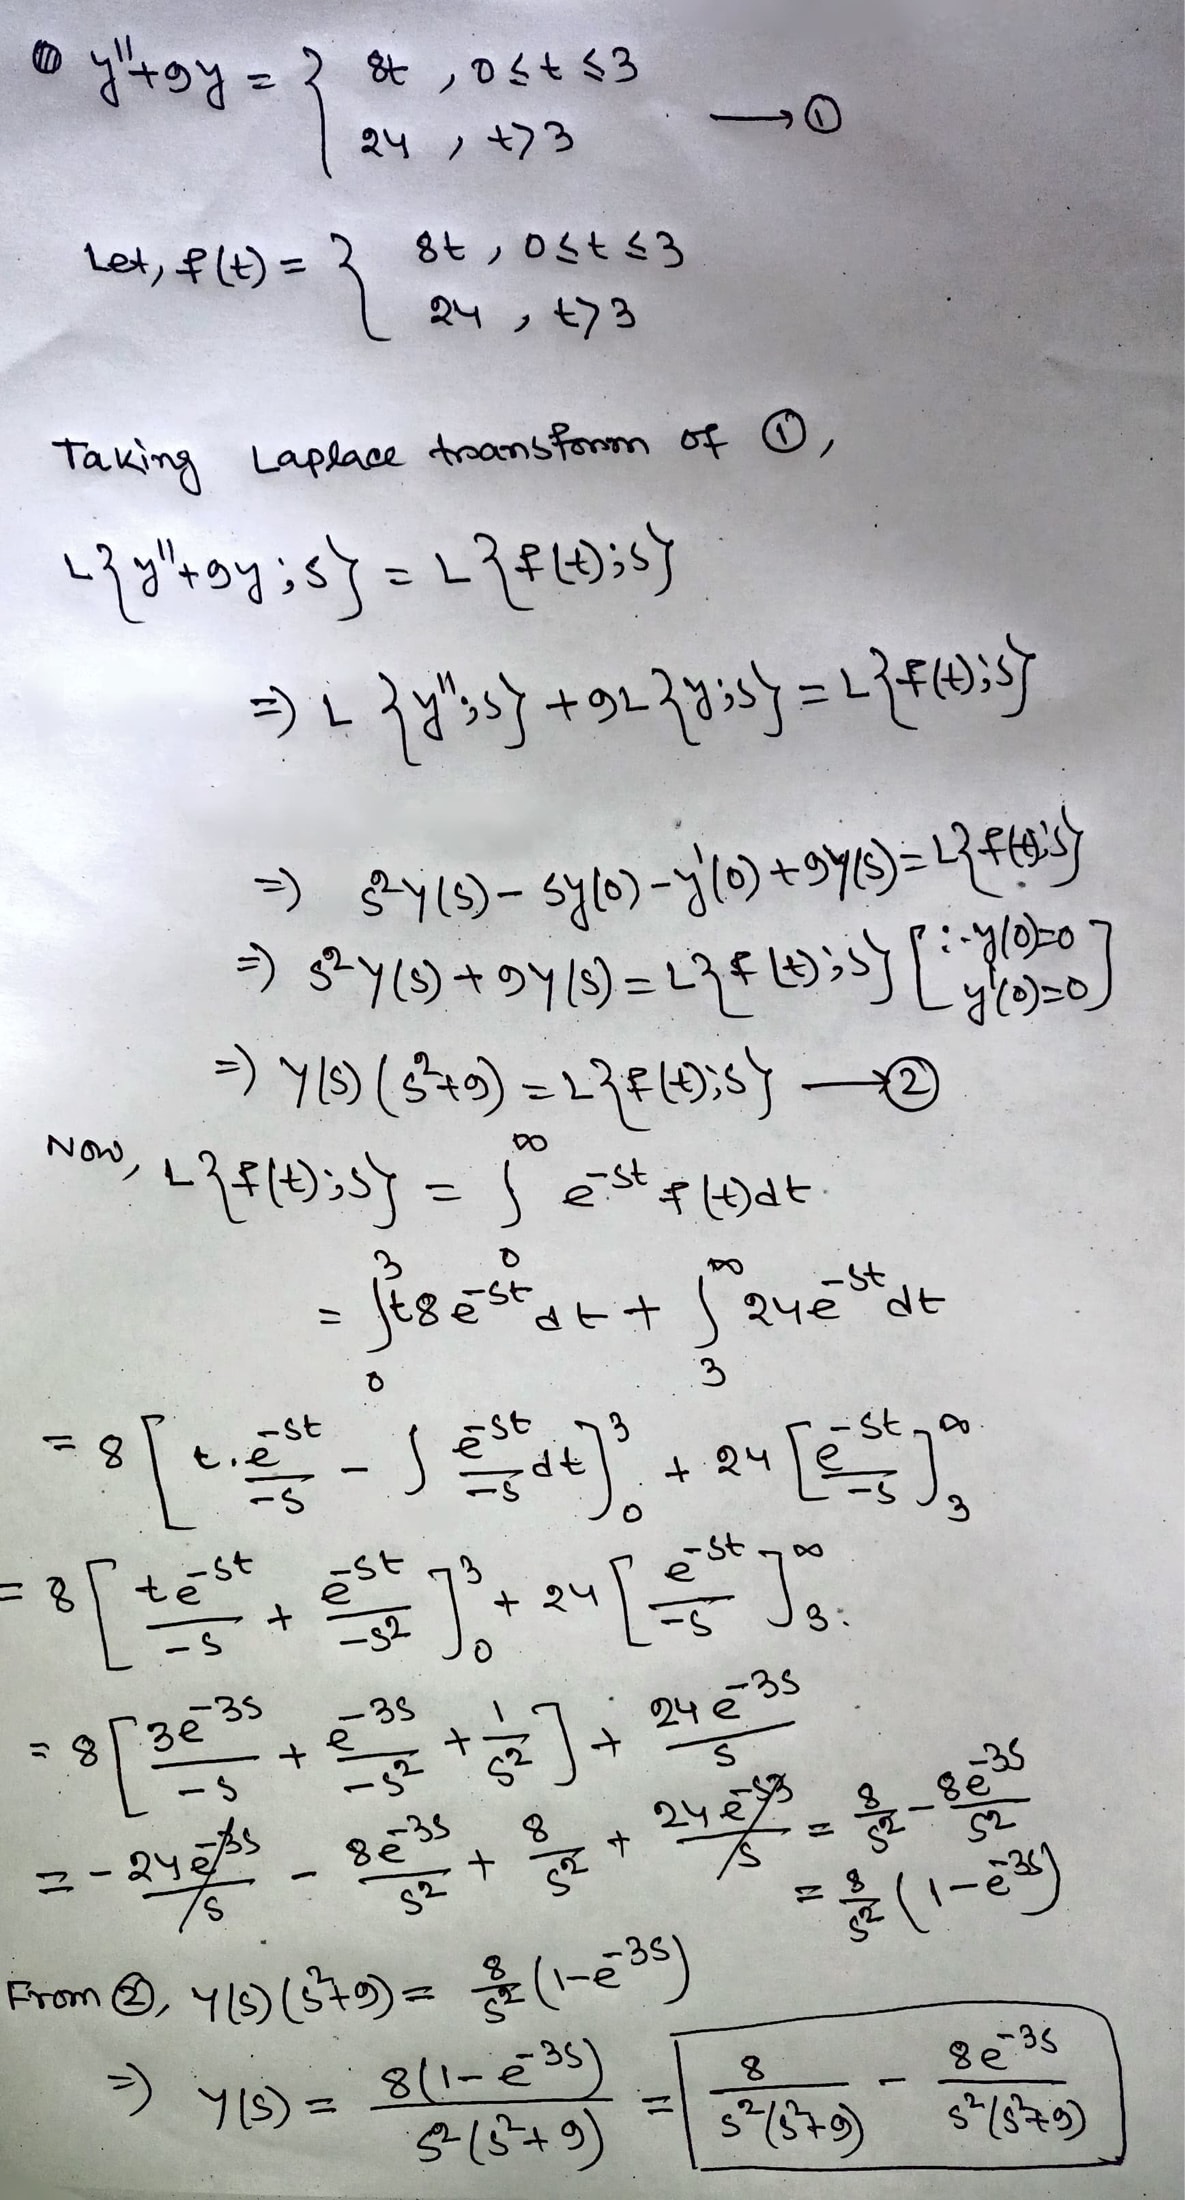 y''+9y = { 8t , 0≤t≤3
24 , t>3 → ①
Let, f(t) = { 8t , 0≤t≤3
24 , t>3
Taking Laplace transform of ①,
L{y''+9y;s} = L{f(t);s}
=> L{y'';s} + 9L{y;s} = L{f(t);s}
=> s²y(s) - sy(0) - y'(0) + 9y(s) = L{f(t);s}
=> s²y(s) + 9y(s) = L{f(t);s} [∵ y(0)=0 y'(0)=0]
=> y(s)(s²+9) = L{f(t);s} → ②
Now, L{f(t);s} = ∫₀^∞ e^-st f(t)dt.
= ∫₀³ t8e^-st dt + ∫₃^∞ 24e^-st dt
= 8[t.e^-st/-s - ∫ e^-st/-s dt]₀³ + 24[e^-st/-s]₃^∞
= 8[te^-st/-s + e^-st/-s²]₀³ + 24[e^-st/-s]₃^∞.
= 8[3e^-3s/-s + e^-3s/-s² + 1/s²] + 24e^-3s/s
= -24e^-3s/s - 8e^-3s/s² + 8/s² + 24e^-s3/s = 8/s² - 8e^-3s/s²
= 8/s²(1-e^-3s)
From ②, y(s)(s²+9) = 8/s²(1-e^-3s)
=> y(s) = 8(1-e^-3s)/s²(s²+9) = 8/s²(s²+9) - 8e^-3s/s²(s²+9)